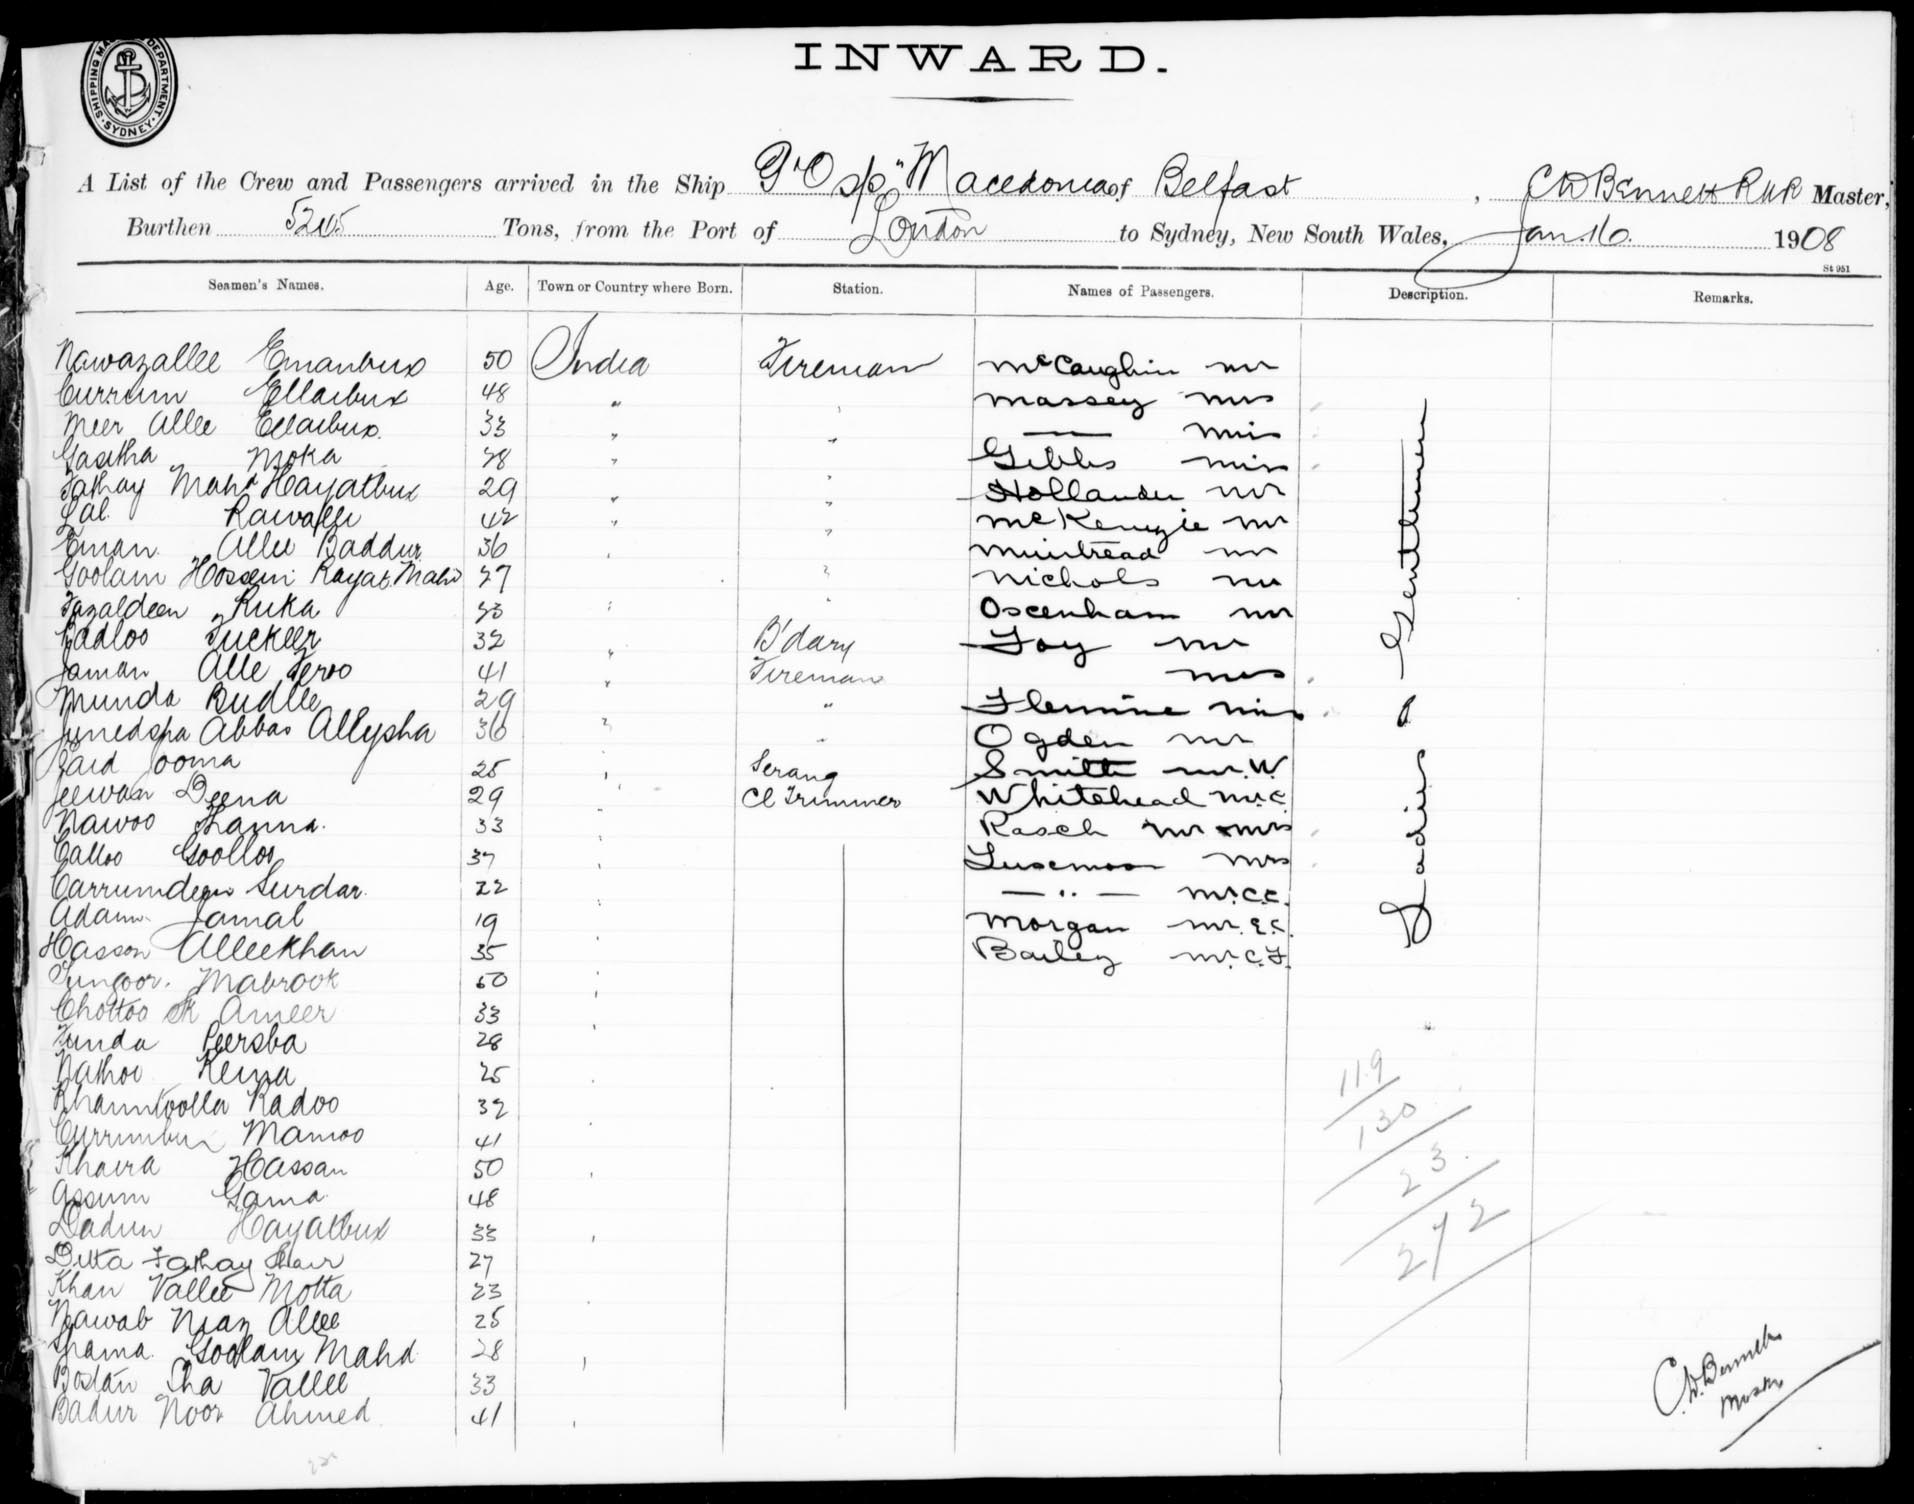 SHIPPING MA DEPARTMENT. SYDNEY.
INWARD.
A List of the Crew and Passengers arrived in the Ship P&O s/s "Macedonia of Belfast, C D Bennett RNR Master,
Burthen 5245 Tons, from the Port of London to Sydney, New South Wales, Jan. 16. 1908
St 951
Seamen's Names. Age. Town or Country where Born. Station. Names of Passengers. Description. Remarks.
Nawazallee Emanbux 50 India Fireman McCaughin mr
Currim Ellaibux 48 " Massey mrs
Meer Allee Ellaibux. 33 " " — miss
Gasitha Moka 28 " Gibbs miss
Fathay Mahd Hayatbux 29 " " Hollander mr
Lal. Rawalli 42 " " McKenzie mr
Eman Allee Baddur 36 Muirhead mr
Goolam Hossein Rayat Mahd 27 Nichols mr
Fazaldeen Ruka 33 Oscenham mr
Fadloo Tuckeer 32 " B'dary Foy mr
Jaman Alle Feroo 41 " Fireman mrs
Munda Budlee 29 " Flemine miss
Junedsha Abbas Allysha 36 " " Ogden mr
Zaid Jooma 25 Serang Smith mr. W.
Jeewan Deena 29 Cl Trimmer Whitehead mr. C.
Nawoo Thanna. 33 Rasch mr & mrs
Calloo Goolloo 37 Lusemoor mrs
Carrumdeen Surdar. 22 — " — mr. C.C.
Adam Jamal 19 Morgan mr. E.C.
Hasson Alleekhan 35 Bailey mr. C.F.
Ladies & Gentlemen
Sungoor. Mabrook 50
Chottoo SK Ameer 33
Funda Peersba 28
Nathoo Kema 25
Khaunkoolla Kadoo 32
Currumbux Mamoo 41
Khaira Hassan 50
Assum Gama 48
Dadun Hayatbux 33
Ditta Fathay Shair 27
Khan Vallee Motta 23
Nawab Niaz Allee 25
Shama Goolam Mahd 28
Bostan Sha Vallee 33
Badur Noor Ahmed 41
119
130
23.
272
C.D. Bennett
Master